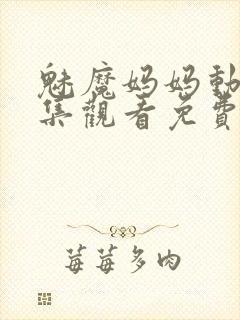 魅魔妈妈動
集觀看免費
莓莓多肉